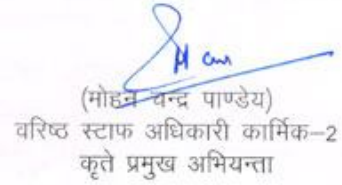 (मोहन चन्द्र पाण्डेय)
वरिष्ठ स्टाफ अधिकारी कार्मिक–2
कृते प्रमुख अभियन्ता